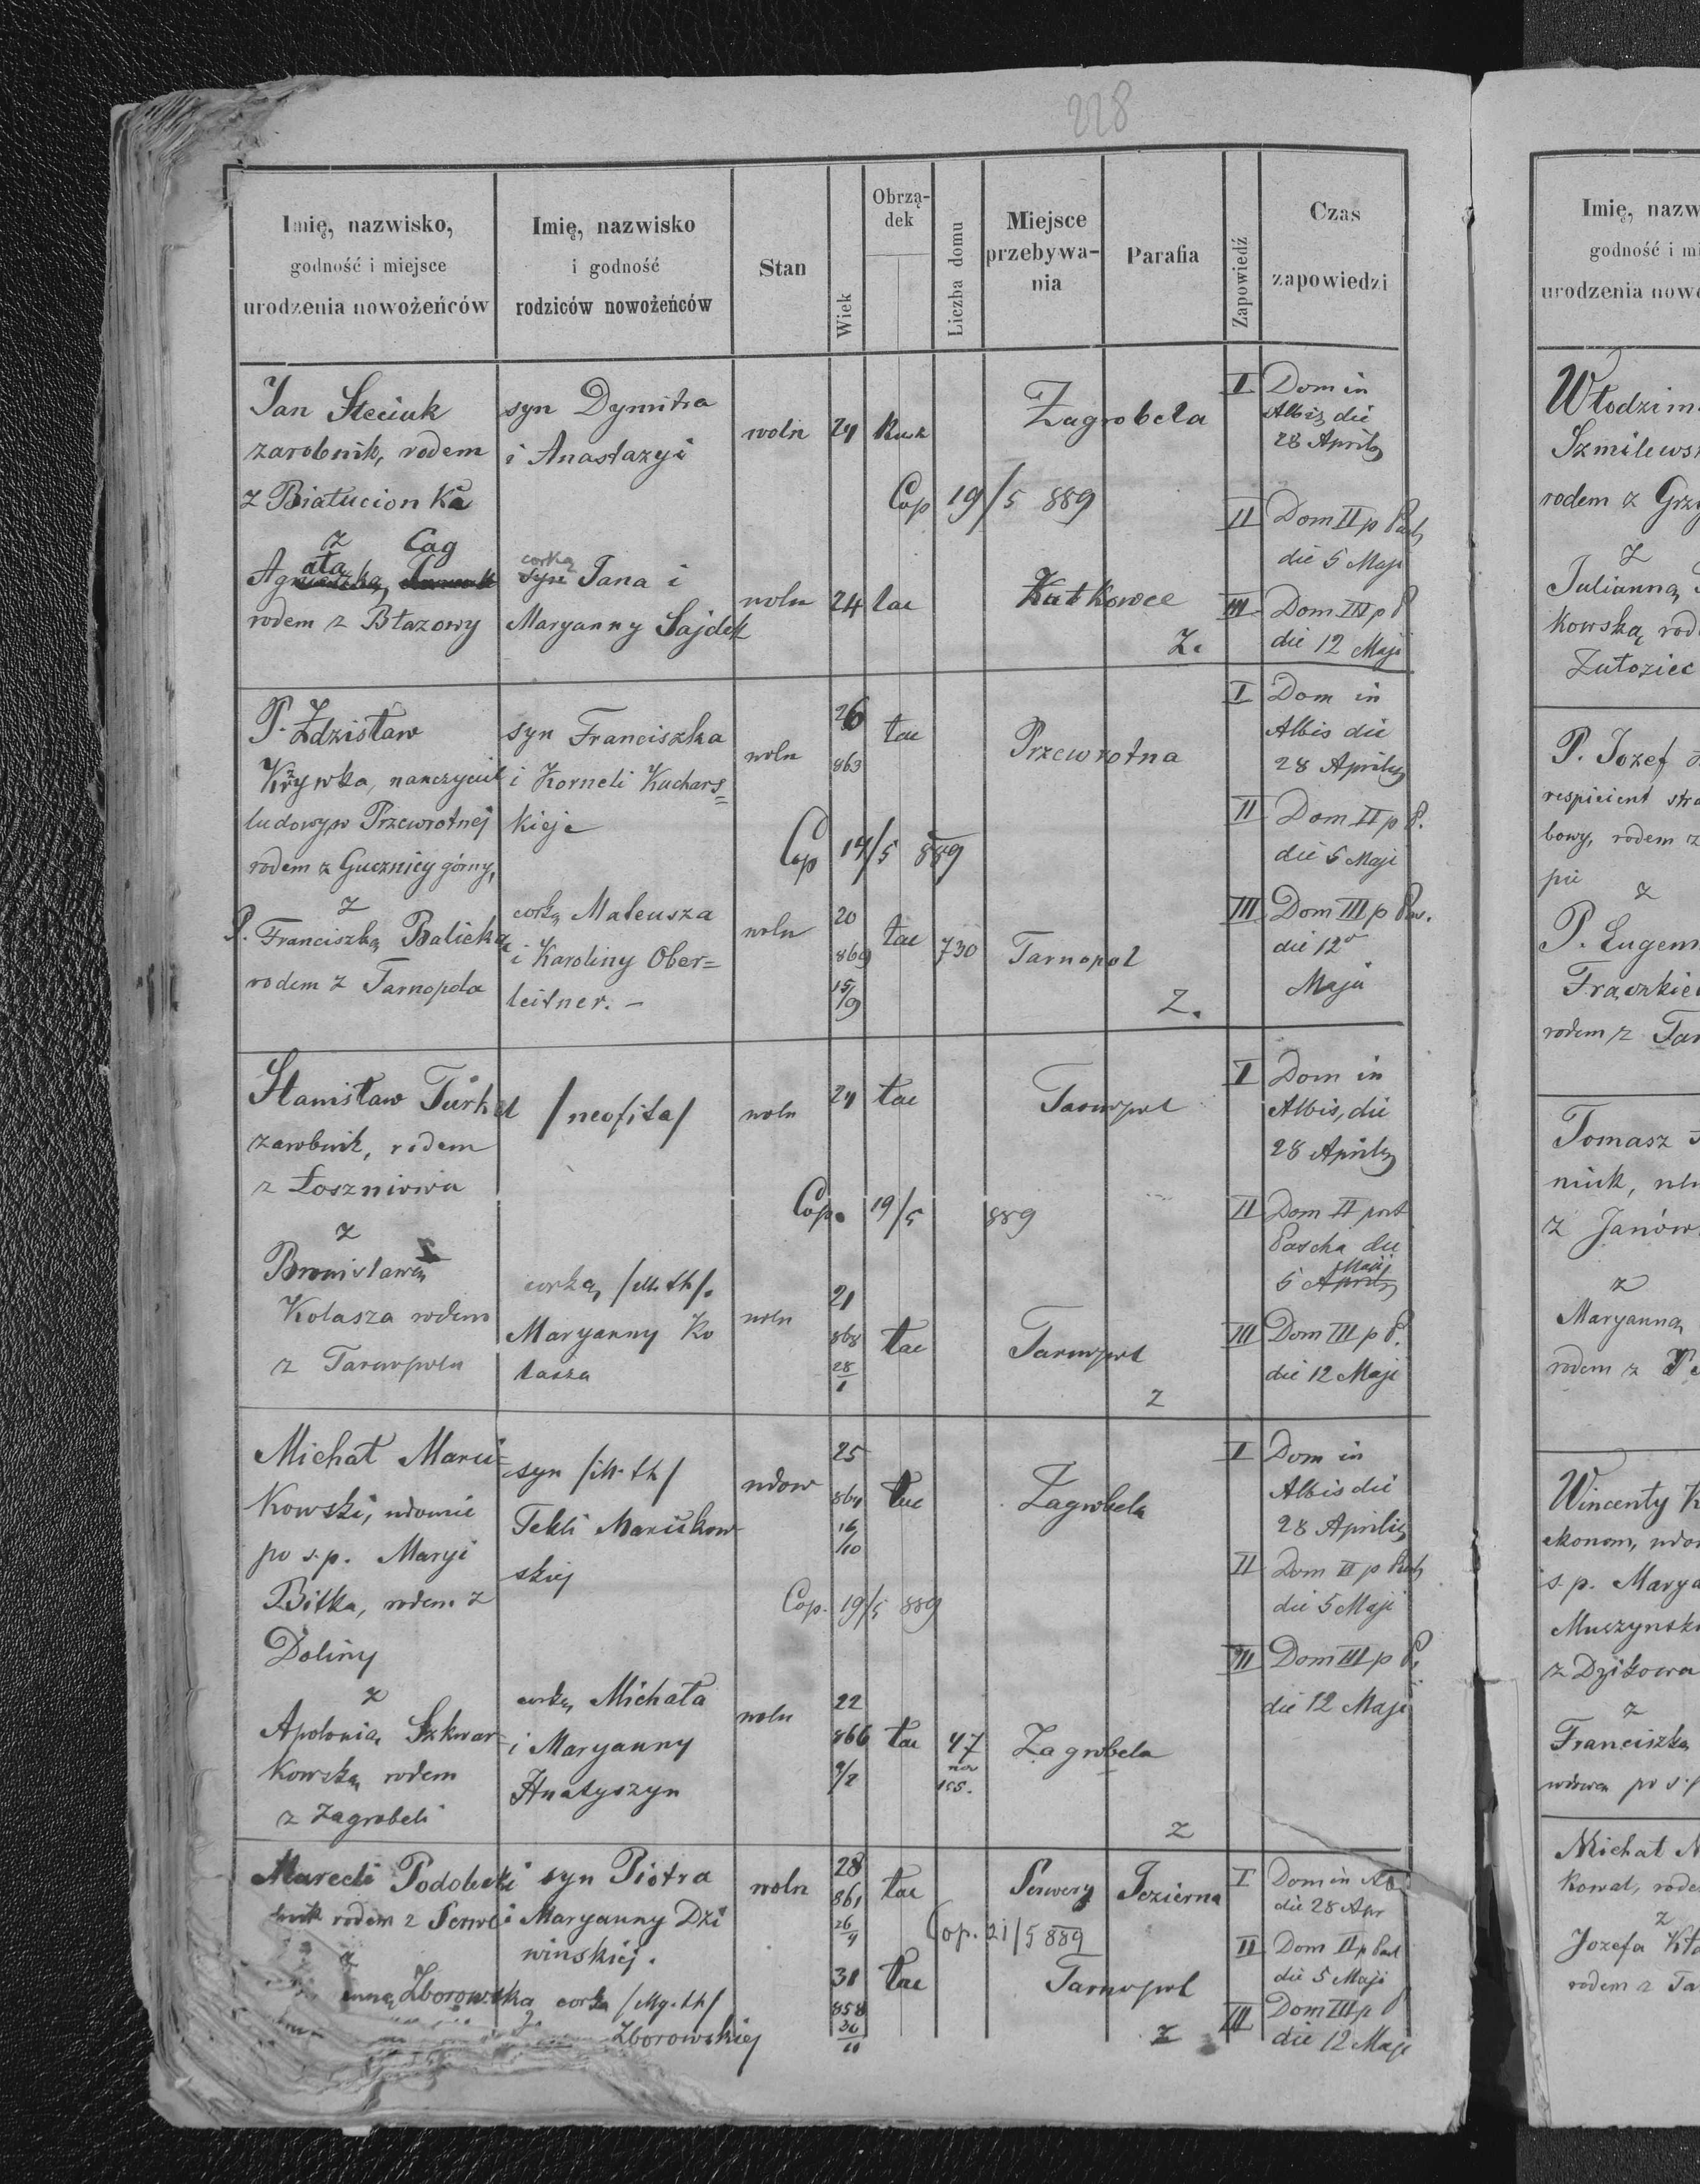 228
Imię, nazwisko,
godność i miejsce
urodzenia nowożeńców
Imię, nazwisko
i godność
rodziców nowożeńców
Stan
Wiek
Obrzą-
dek
Liczba domu
Miejsce
przebywa-
nia
Parafia
Zapowiedź
Czas
zapowiedzi
Jan Steciuk
zarobnik, rodem
z
Cag
z
Agata
rodem z Błazowy
syn Dymitra
i Anastazyi
corka
syn Jana i
Maryanny Sajdek
woln
24
Cop 19/5 889
woln
24
lac
Zagrobela
Kutkowce
Z.
I
Dom in
Albis die
28 Aprilis
II
Dom II p Pas
die 5 Maji
III
Dom III p P
die 12 Maji
P. Zdzisław
Krzywka, nauczyciel
ludowy w Przewrotnej
rodem z górny,
z
P. Franciszką Balicką
rodem z Tarnopola
syn Franciszka
i Korneli Kuchars=
kieje
corką Mateusza
i Karoliny Ober=
leitner. -
woln
26
863
łac
Przewrotna
Cop 14/5 889
woln
20
869
15/9
łac
730
Tarnopol
Z.
I
Dom in
Albis die
28 Aprilis
II
Dom II p P.
die 5 Maji
III
Dom III p Pas.
die 12
Maja
Stanisław Türkel
zarobnik, rodem
z Łoszniowa
z
Bronisławą
Kolasza rodem
z Tarnopola
/neofita/
corką /M. th/.
Maryanny Ko
lasza
woln
24
łac
Tarnopol
Cop. 19/5 889
woln
21
868
28/1
łac
Tarnopol
z
I
Dom in
Albis, die
28 Aprilis
II
Dom II post
Pascha die
Maji
5 Aprilis
III
Dom III p P.
die 12 Maji
Michał Marci=
kowski, wdowiec
po s.p. Maryi
Bitka, rodem z
Doliny
z
Apolonią Szkwar=
kowską rodem
z Zagrobeli
syn /M. th/
Tekli Marcikow
skiej
corką Michała
i Maryanny
Hnatyszyn
wdow
25
864
16/10
łac
Zagrobela
Cop. 19/5 889
woln
22
866
9/2
łac
47
now
155.
Zagrobela
z
I
Dom in
Albis die
28 Aprilis
II
Dom II p Pas
die 5 Maji
III
Dom III p P.
die 12 Maji
Marceli Podolecki
rodem z
z
Zborowska
syn Piotra
i Maryanny Dzi
winskiej.
corka /Mg. th/
Zborowskiej
woln
28
861
26/4
łac
Serwery
Jezierna
Cop. 21/5 889
31
858
łac
Tarnopol
z
I
Dom in Alb
die 28 Apr
II
Dom II p Pas
die 5 Maji
III
Dom III p P
die 12 Maji
Imię, nazw
godność i mi
urodzenia nowo
Włodzim
Szmilews
rodem z Grzy
z
Julianną
kowską, rod
Załoziec
P. Jozef
respicient stra
bowy, rodem z
z
P. Eugen
Frączkie
rodem z Tar
Tomasz
z Janów
z
Maryanną
rodem z
Wincenty K
ekonom, wdo
s.p. Marya
Muszynsk
z Dzikowa
z
Franciszką
wdową po s.p
Michał M
kowal, rode
z
Jozefa Kł
rodem z Ta